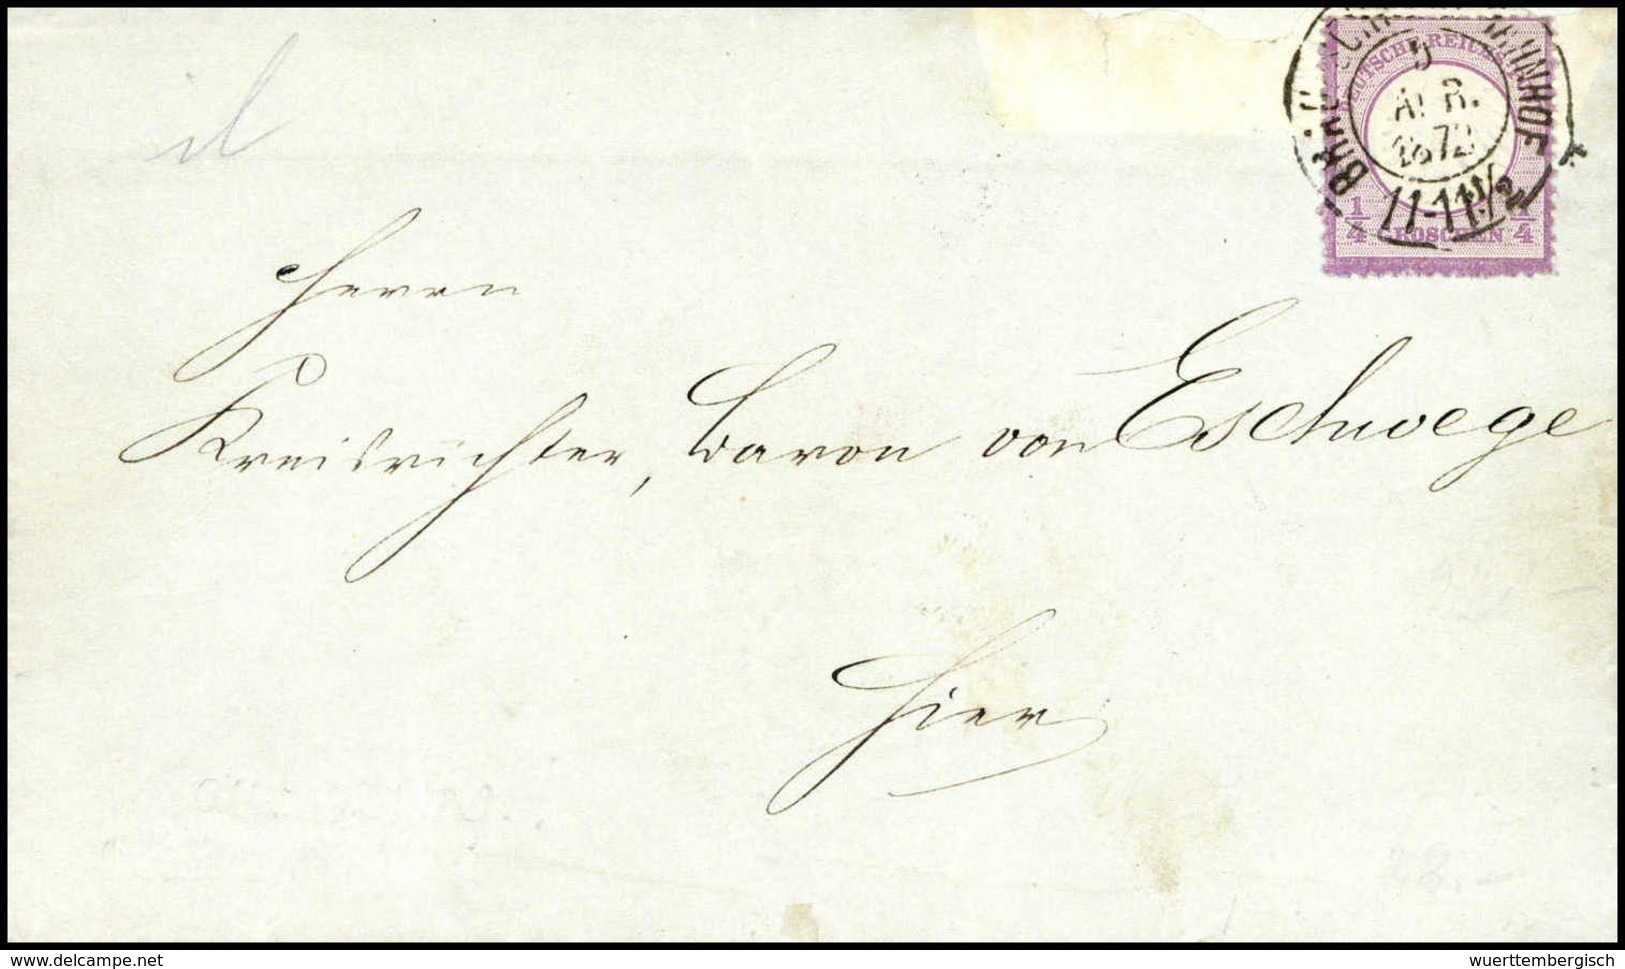 BRAUNSCHWEIG BAHNHOF
5
APR.
1872
11-11½
DEUTSCHE REICHS
1/4 GROSCHEN 1/4
Herrn
Kreisrichter, Baron von Eschwege
hier
delcampe.net
wuerttembergisch